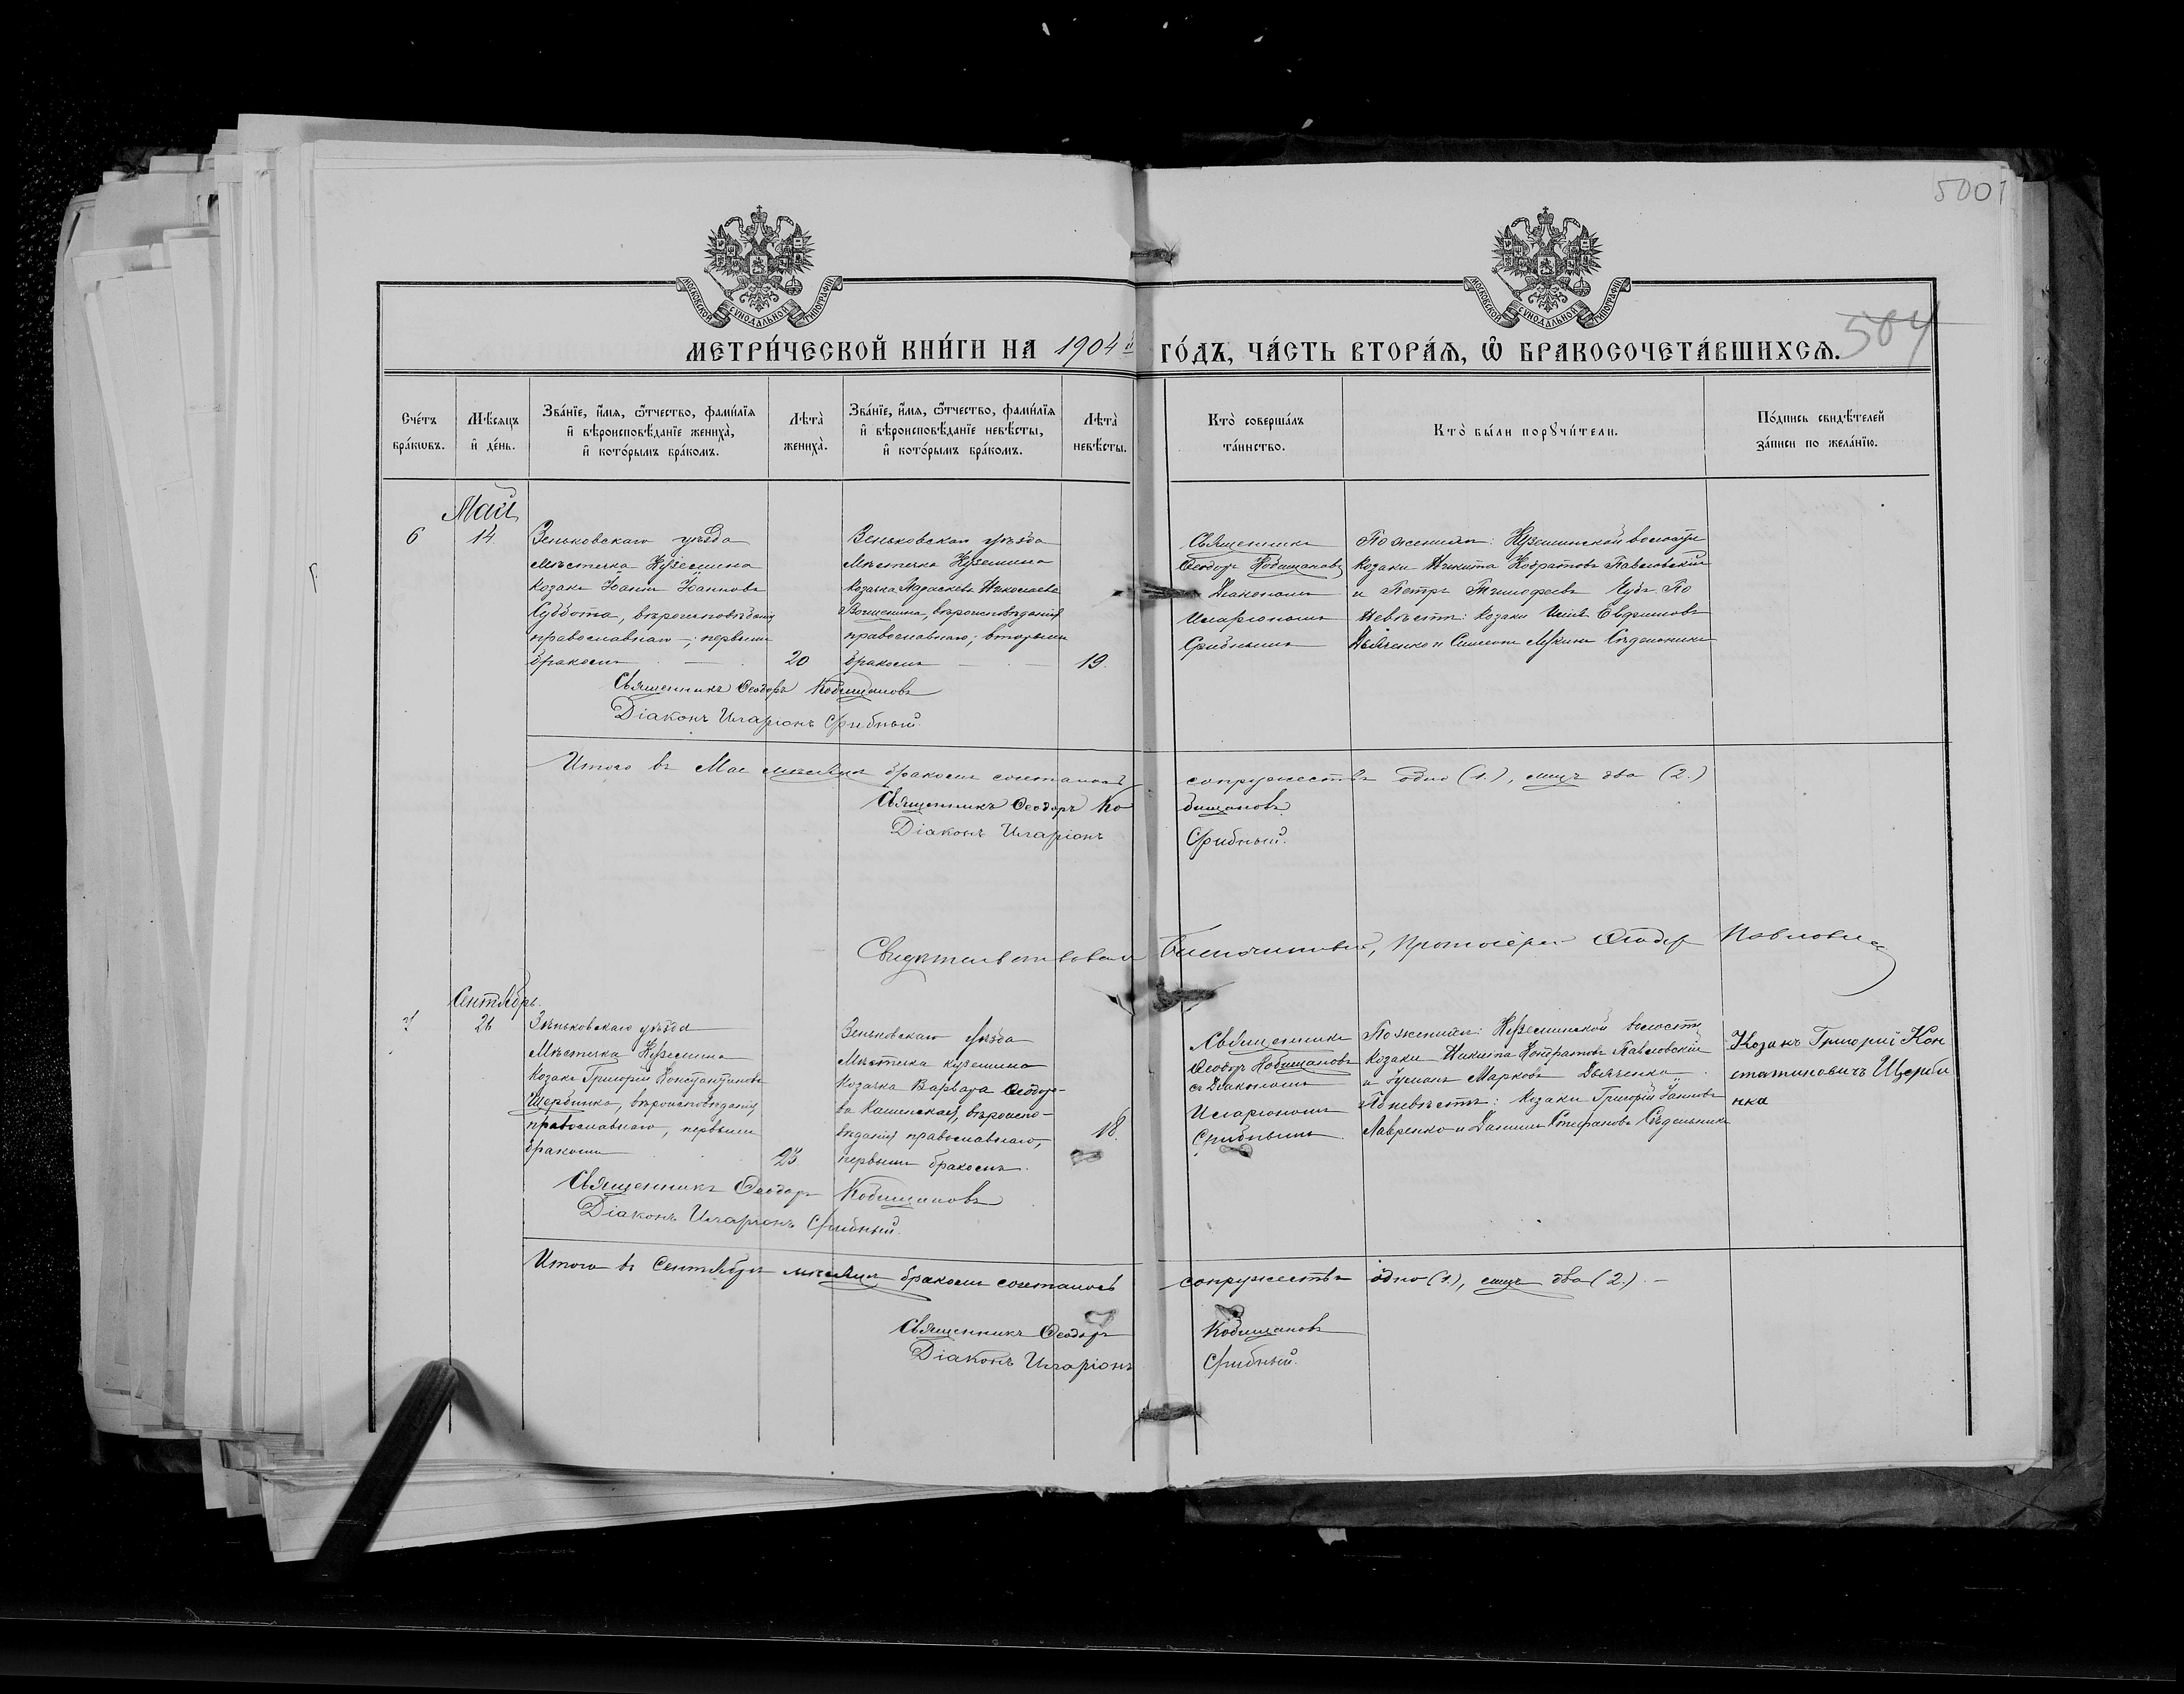 5001
504
МОСКОВСКОЙ СѴНОДАЛЬНОЙ ТИПОГРАФІИ
МОСКОВСКОЙ СѴНОДАЛЬНОЙ ТИПОГРАФІИ
МЕТРИ́ЧЕСКОЙ КНИ́ГИ НА 1904й ГО́ДЪ, ЧА́СТЬ ВТОРА́Ѧ, Ѽ БРАКОСОЧЕТА́ВШИХСѦ.
Сче́тъ
бра́кѡвъ.
Мѣ́сяцъ
и҆ де́нь.
Зва́нїе, и҆́мѧ, ѻ҆́тчество, фами́лїѧ
и҆ вѣроисповѣ́данїе жениха̀,
и҆ кото́рымъ бра́комъ.
Лѣта̀
жениха̀.
Зва́нїе, и҆́мѧ, ѻ҆́тчество, фами́лїѧ
и҆ вѣроисповѣ́данїе невѣ́сты,
и҆ кото́рымъ бра́комъ.
Лѣта̀
невѣ́сты.
Кто̀ соверша́лъ
та́инство.
Кто̀ бы́ли порꙋчи́тели.
По́дпись свидѣ́телей
за́писи по жела́нїю.
Май
6
14
Зеньковскаго уѣзда
мѣстечка Куземина
козакъ Іоаннъ Іоанновъ
Суббота, вѣроисповѣданія
православнаго —; первымъ
бракомъ
20
Зеньковскаго уѣзда
мѣстечка Куземина
козачка Параскева Николаева
вѣроисповѣданія
православнаго; вторымъ
бракомъ
19.
Священникъ
Ѳеодоръ Кобищановъ
Діакономъ
Иларіономъ
Срибнымъ
По женихѣ: Куземинской волости
козаки Никита Кодратовъ Павловскій
и Петръ Тимофеевъ По
невѣстѣ: козаки
Дьяченко и Симеонъ Седельникъ
Священникъ Ѳеодоръ Кобищановъ
Діаконъ Иларіонъ Срибный.
Итого въ Маѣ мѣсяцѣ бракомъ сочеталось супружествъ одно (1.), лицъ два (2.)
Священникъ Ѳеодоръ Кобищановъ.
Діаконъ Иларіонъ Срибный.
Свидѣтельствовалъ Благочинный, Протоіерей Ѳеодоръ
Сентябрь.
7
26
Зѣньковскаго уѣзда
мѣстечка Куземина
козакъ Григорій Константиновъ
Щербинка, вѣроисповѣданія
православнаго, первымъ
бракомъ
23
Зеньковскаго уѣзда
мѣстечка Куземина
козачка Варвара Ѳеодоро-
ва вѣроиспо-
вѣданія православнаго,
первымъ бракомъ.
18.
Священникъ
Ѳеодоръ Кобищановъ
съ Діакономъ
Иларіономъ
Срибнымъ.
По женихѣ: Куземинской волости
козаки Никита Кондратовъ Павловскій
и Марковъ Дьяченко.
По невѣстѣ: козаки Григорій Іоанновъ
Лавренко и Даніилъ Стефановъ Сѣдельникъ
Козакъ Григорій Кон
статиновичъ Щерби
нка
Священникъ Ѳеодоръ Кобищановъ
Діаконъ Иларіонъ Срибный.
Итого въ Сентябрѣ мѣсяцѣ бракомъ сочеталось супружествъ одно (1.), лицъ два (2.) —
Священникъ Ѳеодоръ Кобищановъ
Діаконъ Иларіонъ Срибный.